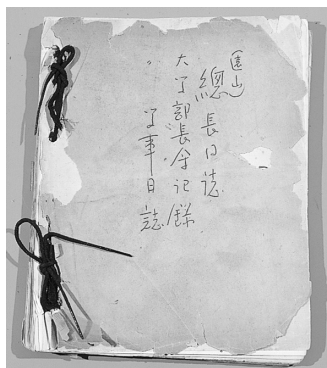 遠山
總長日誌
大学部長会記録
〃 学事日誌